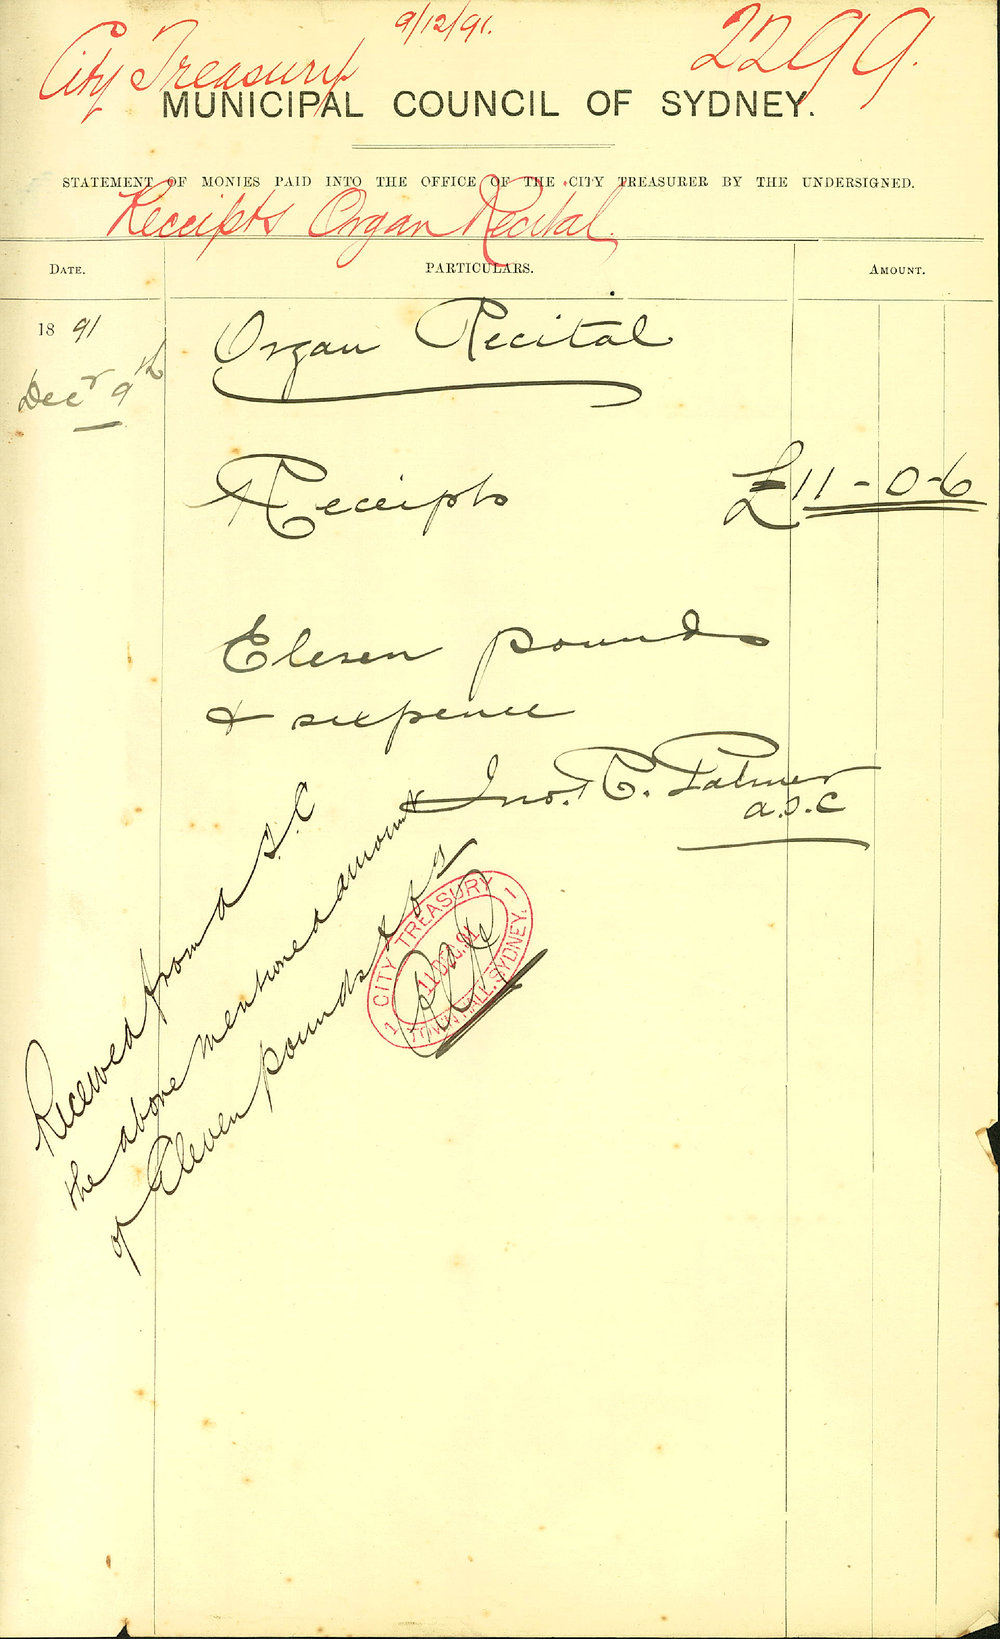 9/12/91.
2299.
City Treasury
MUNICIPAL COUNCIL OF SYDNEY.
STATEMENT OF MONIES PAID INTO THE OFFICE OF THE CITY TREASURER BY THE UNDERSIGNED.
Receipts Organ Recital.
DATE. PARTICULARS. AMOUNT.
18 91 Organ Recital
Decr 9th
Receipts £11-0-6
Eleven pounds
& sixpence
Jno. C. Palmer
a.s.c
Received from A S.C
the above mentioned amount
of Eleven pounds
CITY TREASURY
11 DEC. 91
TOWN HALL, SYDNEY.
1 1